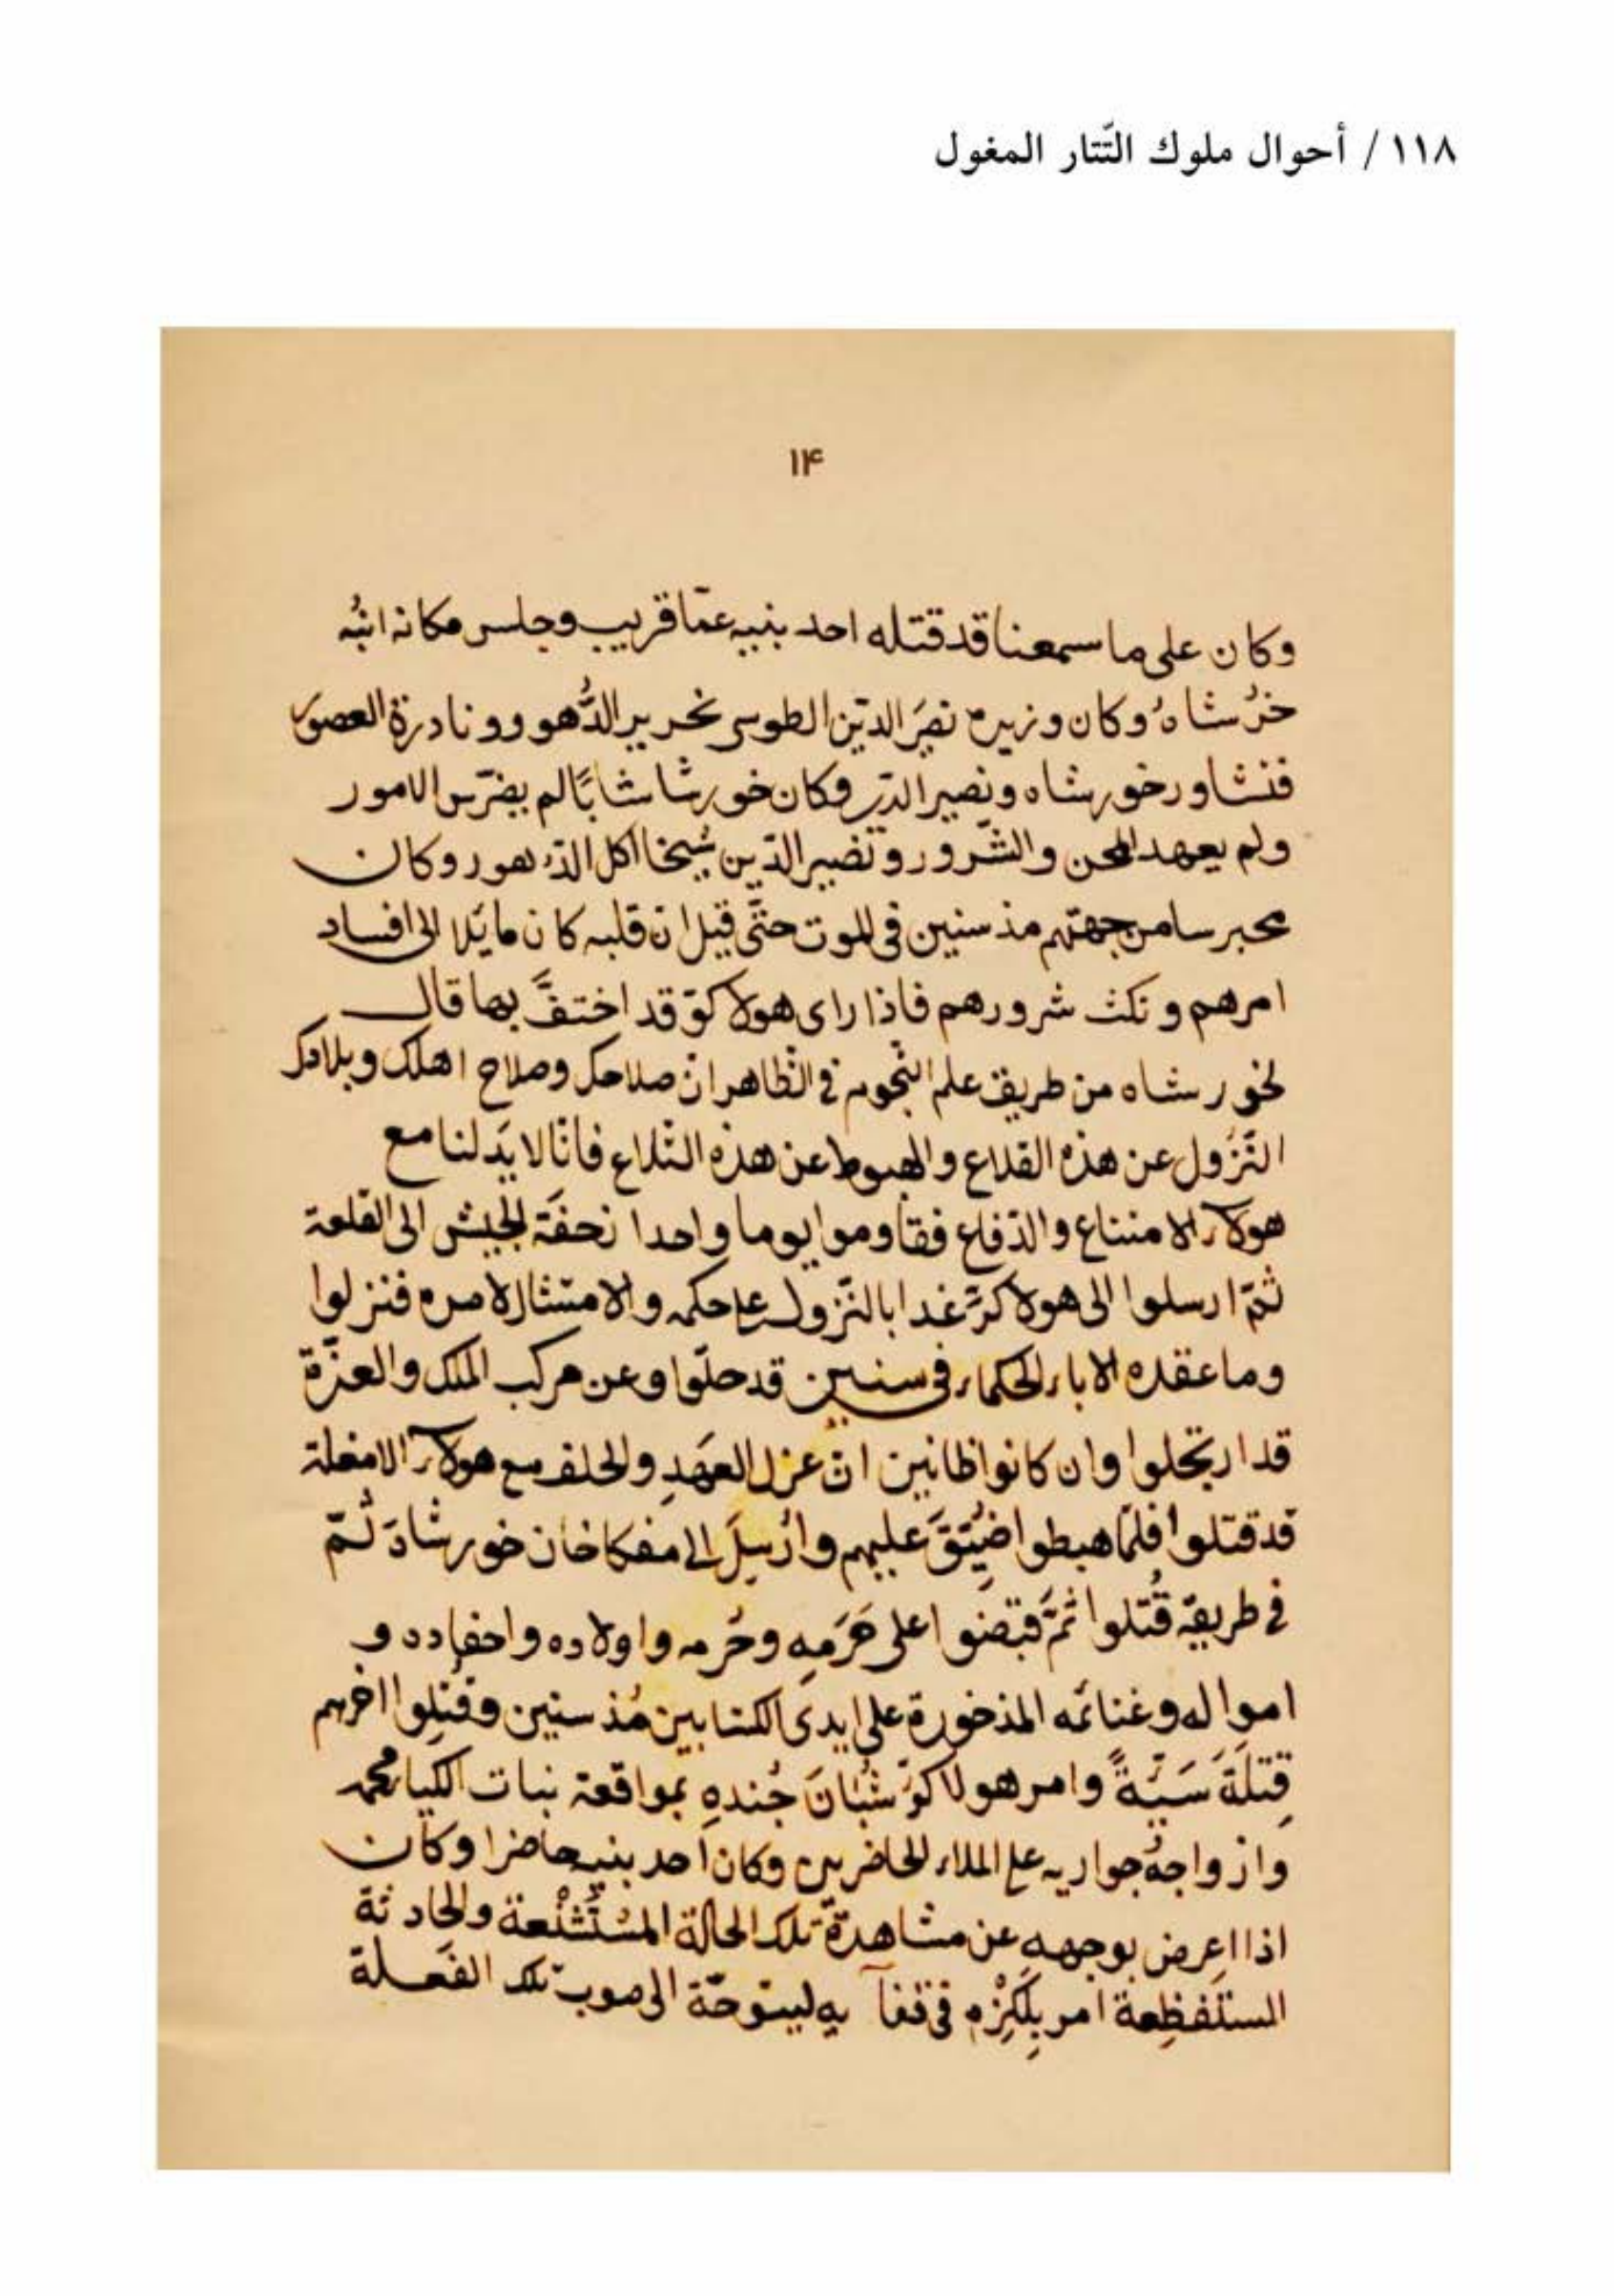 ١١٨ / أحوال ملوك التّتار المغول
۱۴
وكان على ما سمعنا قد قتله احد بنيه عمّا قريب وجلس مكانه ابنُه
خرُشاهُ وكان وزيره نصيَر الدّين الطوسى نحرير الدُّهوور ونادرة العصوَر
فتشاور خورشاه ونصير الدّين وكان خورشا شابًا لم يضرّس الامور
ولم يعهد المحن والشّرور ونصير الدّين شيخا اكل الدّهور وكان
محبرسا من جهتهم مذ سنين فى الموت حتَّى قيل انّ قلبه كان مايَلا الى افساد
امرهم ونكث شرورهم فاذا راى هولاكوّ قد اختفَّ بها قال
لخورشاه من طريق علم النّجوم فى الظّاهر انّ صلاحك وصلاح اهلك وبلادك
النّزُول عن هذه القلاع والهبوط عن هذه التّلاع فانّا لا بدَ لنا مع
هولآء الامتناع والدّفاع فقاوموا يوما واحدا زحفَة الجيش الى القلعة
ثمّ ارسلوا الى هولاكوّ غدا بالنّزول على حكمه والامتثال لامره فنزلوا
وما عقده الاباء الحكماء فى سنين قد حلّوا وعن مركب الملك والعزّة
قد ارتحلوا وان كانوا ظانين انّ عزل العهَدِ والحلف مع هولآء الامغلة
قد قتلوا فلمّا هبطوا ضُيّقَ عليهم وارُسِلَ الى مفكاخان خورشاهَ ثُمّ
فى طريقهّ قُتلوا ثمَّ قبضوا على حَرَمهِ وحُرمه واولاده واحفاده و
امواله وغنائمه المذخورة على ايدى الكتابين مُذ سنين وقُتِلوا اخرهم
قِتلَةَ سَيّةً وامر هولاكوُّ شُبّانَ جُندهِ بمواقعة بنات الكيا محمد
وازواجهُ جواريه على الملاء الحاضرين وكان احد بنيه حاضرا وكان
اذا اعرض بوجهه عن مشاهدة تلك الحالة المسُتَشْنَعة والحادثة
المستَفظِعة امر بِلَكِزْه فى قفآيه ليتوجّه الى صوب تلك الفَعلة